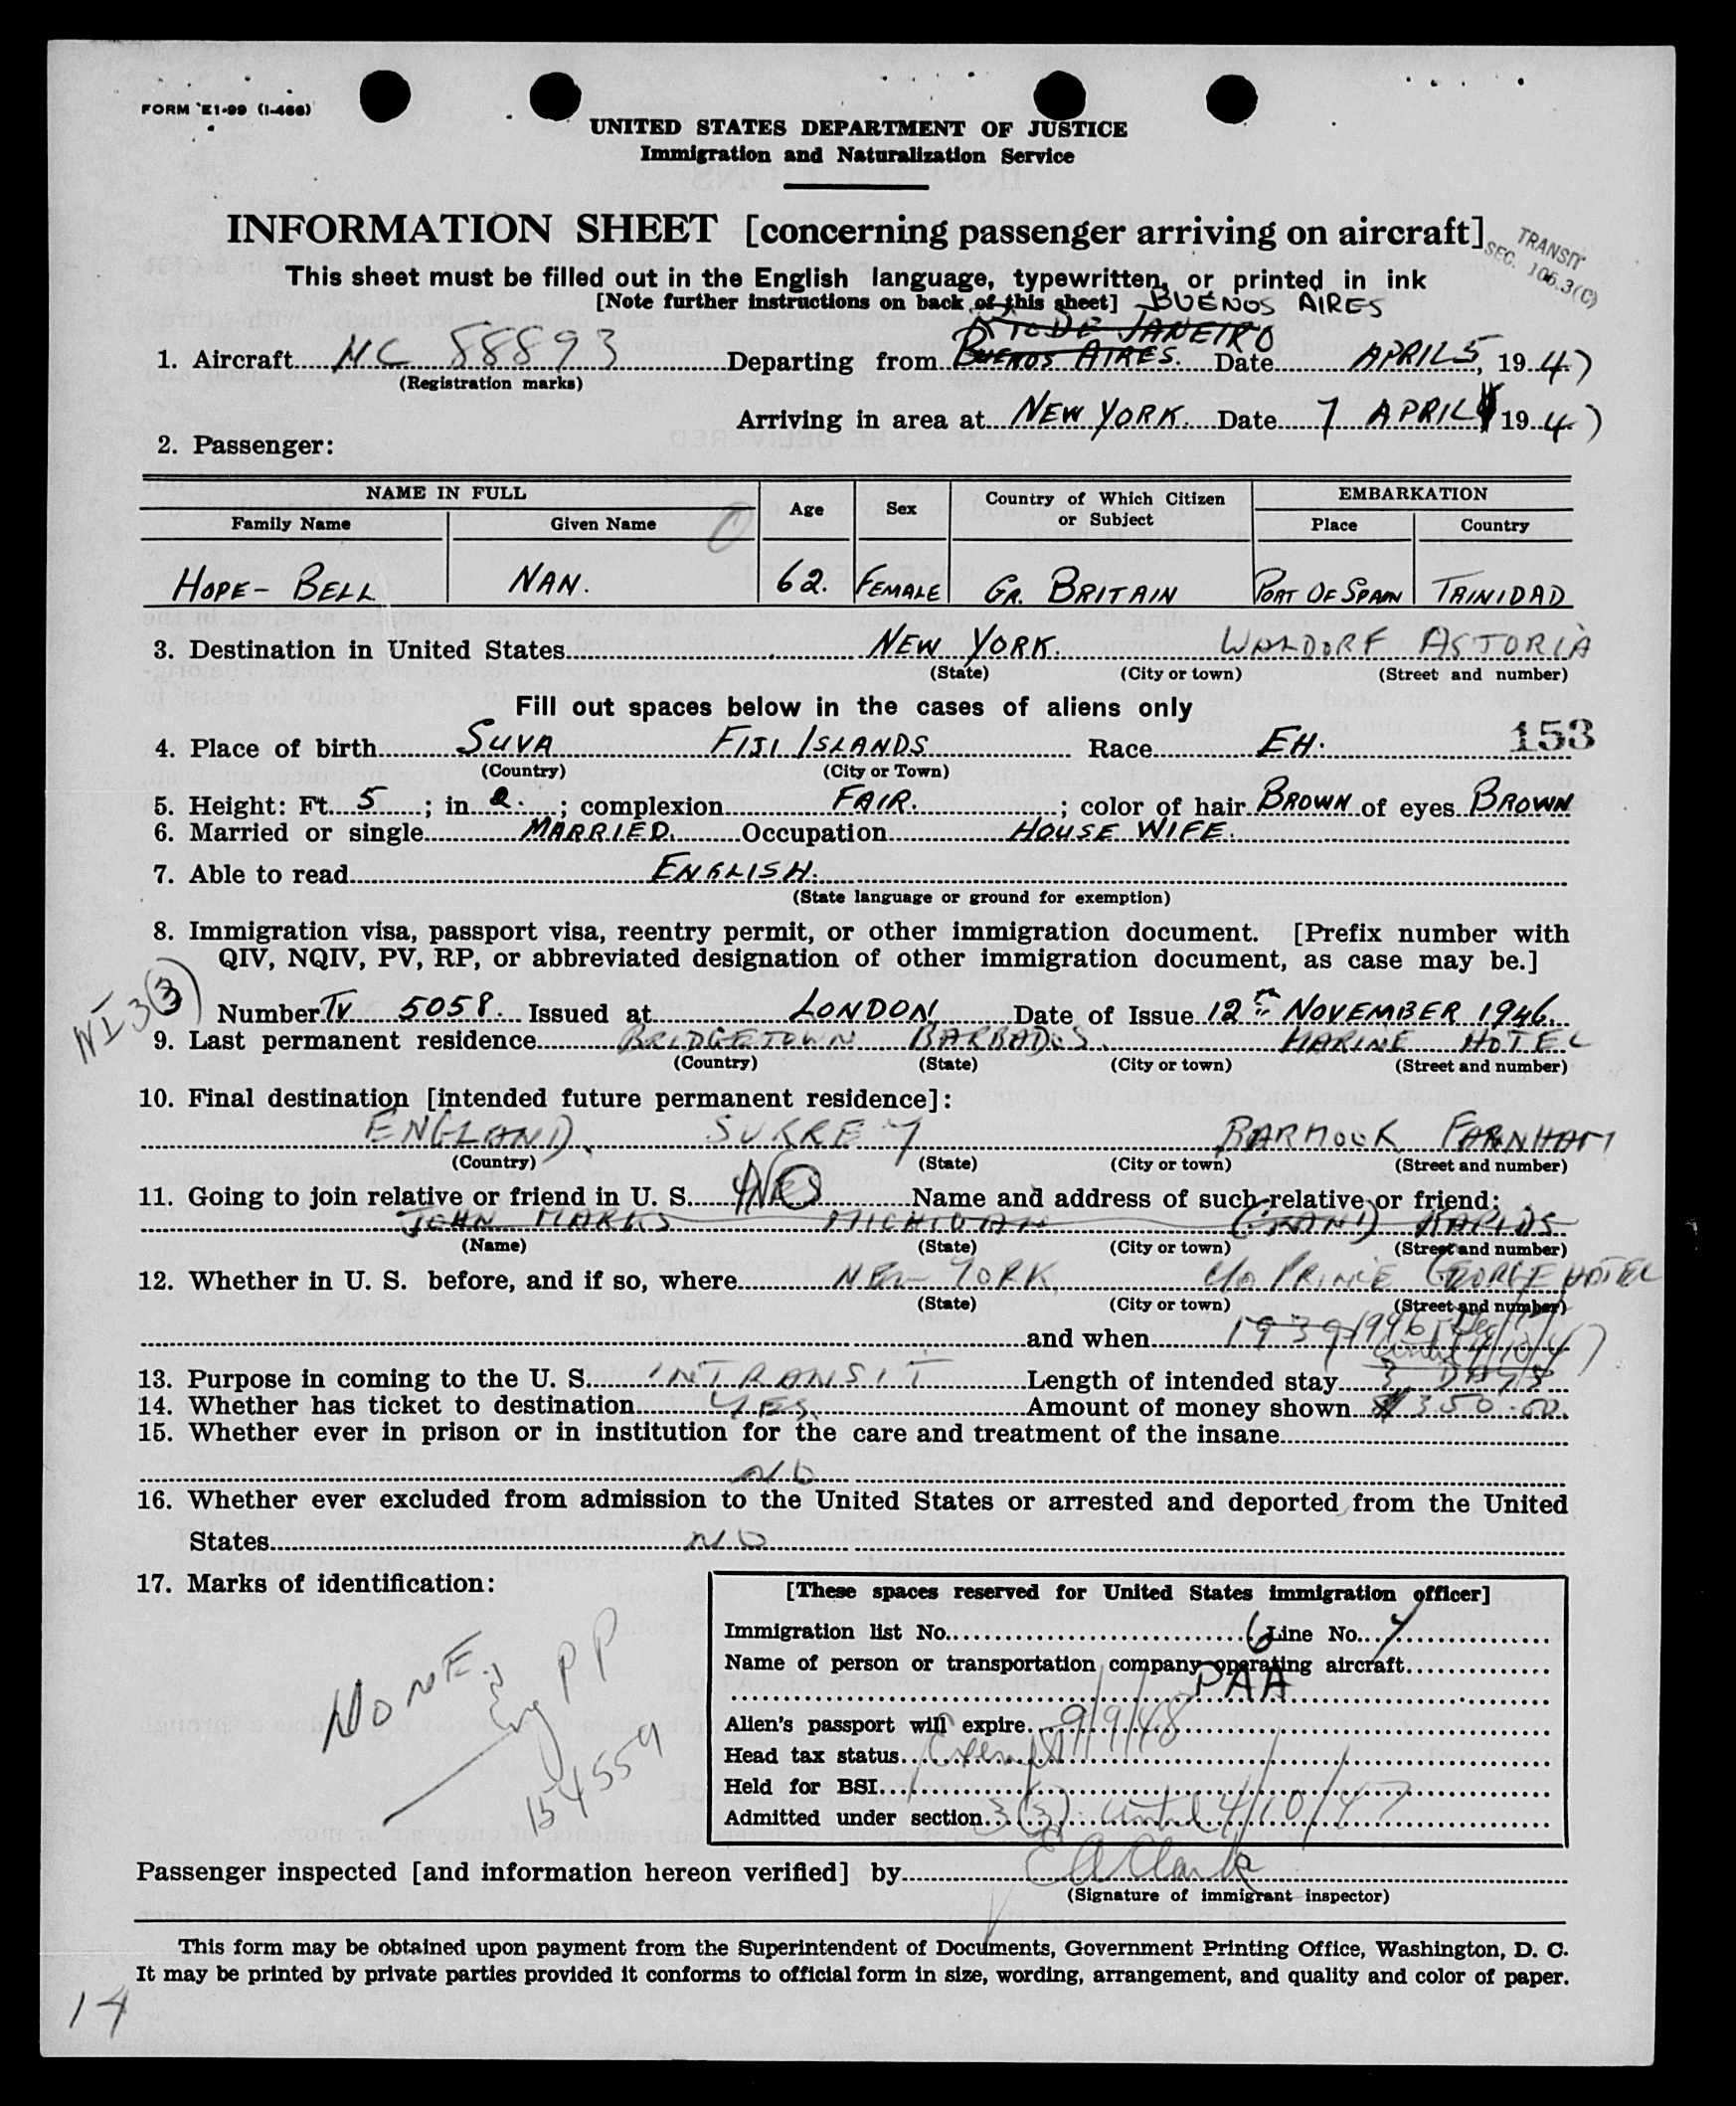 FORM E1-99 (I-466)
UNITED STATES DEPARTMENT OF JUSTICE
Immigration and Naturalization Service
INFORMATION SHEET [concerning passenger arriving on aircraft]
TRANSIT
SEC. 105.3(C)
This sheet must be filled out in the English language, typewritten, or printed in ink
[Note further instructions on back of this sheet] BUENOS AIRES
DE JANEIRO
1. Aircraft NC 88893 Departing from BUENOS AIRES. Date APRIL 5, 1947
(Registration marks)
Arriving in area at NEW YORK. Date 7 APRIL 1947
2. Passenger:
NAME IN FULL Age Sex Country of Which Citizen or Subject EMBARKATION
Family Name Given Name Place Country
HOPE-BELL NAN. 62. FEMALE GR. BRITAIN PORT OF SPAIN TRINIDAD
3. Destination in United States NEW YORK. WALDORF ASTORIA
(State) (City or town) (Street and number)
Fill out spaces below in the cases of aliens only
4. Place of birth SUVA FIJI ISLANDS Race EH. 153
(Country) (City or Town)
5. Height: Ft. 5; in. 2.; complexion FAIR.; color of hair BROWN of eyes BROWN
6. Married or single MARRIED. Occupation HOUSE WIFE.
7. Able to read ENGLISH.
(State language or ground for exemption)
8. Immigration visa, passport visa, reentry permit, or other immigration document. [Prefix number with
QIV, NQIV, PV, RP, or abbreviated designation of other immigration document, as case may be.]
NI 3(3)
Number TV 5058. Issued at LONDON Date of Issue 12th NOVEMBER 1946.
9. Last permanent residence BRIDGETOWN BARBADOS. MARINE HOTEL
(Country) (State) (City or town) (Street and number)
10. Final destination [intended future permanent residence]:
ENGLAND. SURREY FARNHAM
(Country) (State) (City or town) (Street and number)
11. Going to join relative or friend in U. S. NO Name and address of such relative or friend:
JOHN MARKS MICHIGAN GRAND RAPIDS
(Name) (State) (City or town) (Street and number)
12. Whether in U. S. before, and if so, where NEW YORK, c/o PRINCE GEORGE HOTEL
(State) (City or town) (Street and number)
and when 1939 1946
until 4/10/47
13. Purpose in coming to the U. S. IN TRANSIT Length of intended stay 3 DAYS
14. Whether has ticket to destination YES. Amount of money shown $350.00.
15. Whether ever in prison or in institution for the care and treatment of the insane
NO
16. Whether ever excluded from admission to the United States or arrested and deported from the United
States NO
17. Marks of identification:
NONE.
PP
154559
[These spaces reserved for United States immigration officer]
Immigration list No. 6 Line No. 4
Name of person or transportation company operating aircraft
PAA
Alien's passport will expire 9/9/48
Head tax status Exempt
Held for BSI
Admitted under section 3(3) until 4/10/47
Passenger inspected [and information hereon verified] by E A Clark
(Signature of immigrant inspector)
This form may be obtained upon payment from the Superintendent of Documents, Government Printing Office, Washington, D. C.
It may be printed by private parties provided it conforms to official form in size, wording, arrangement, and quality and color of paper.
14